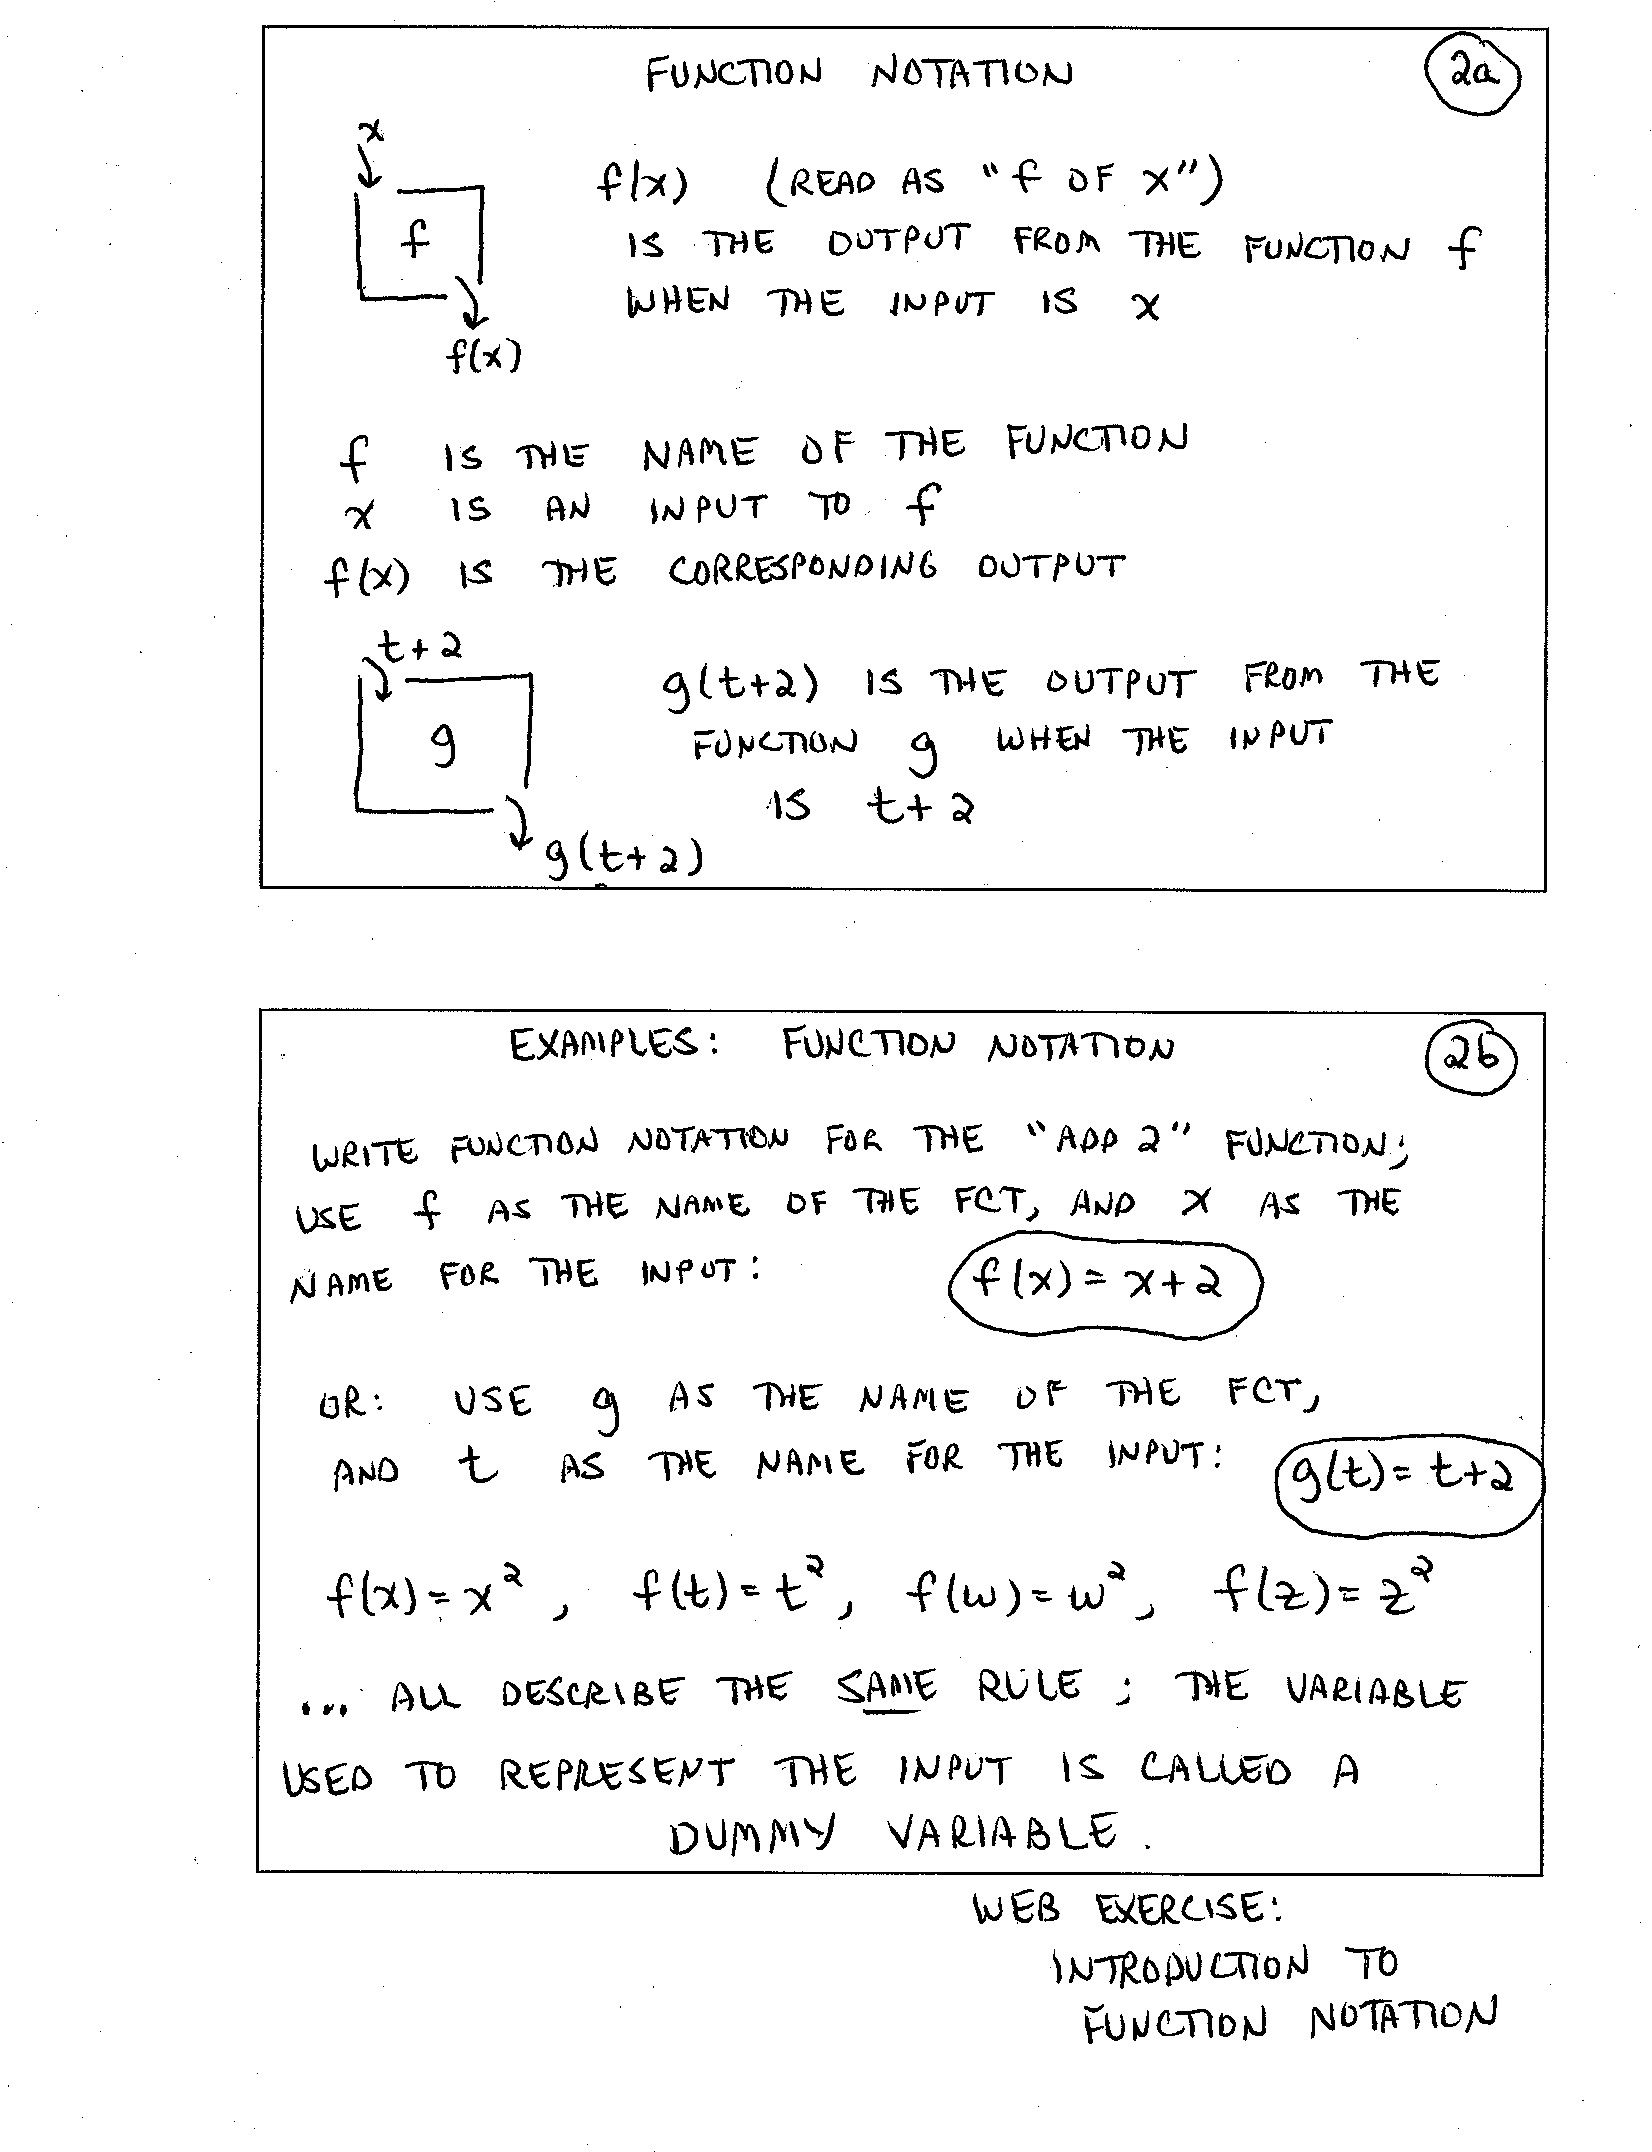 FUNCTION NOTATION
2a
x
f
f(x)
f(x) (READ AS "f OF x")
IS THE OUTPUT FROM THE FUNCTION f
WHEN THE INPUT IS x
f IS THE NAME OF THE FUNCTION
x IS AN INPUT TO f
f(x) IS THE CORRESPONDING OUTPUT
t+2
g
g(t+2)
g(t+2) IS THE OUTPUT FROM THE
FUNCTION g WHEN THE INPUT
IS t+2
EXAMPLES: FUNCTION NOTATION
2b
WRITE FUNCTION NOTATION FOR THE "ADD 2" FUNCTION;
USE f AS THE NAME OF THE FCT, AND X AS THE
NAME FOR THE INPUT: f(x) = x+2
OR: USE g AS THE NAME OF THE FCT,
AND t AS THE NAME FOR THE INPUT: g(t) = t+2
f(x) = x², f(t) = t², f(w) = w², f(z) = z²
... ALL DESCRIBE THE SAME RULE; THE VARIABLE
USED TO REPRESENT THE INPUT IS CALLED A
DUMMY VARIABLE.
WEB EXERCISE:
INTRODUCTION TO
FUNCTION NOTATION